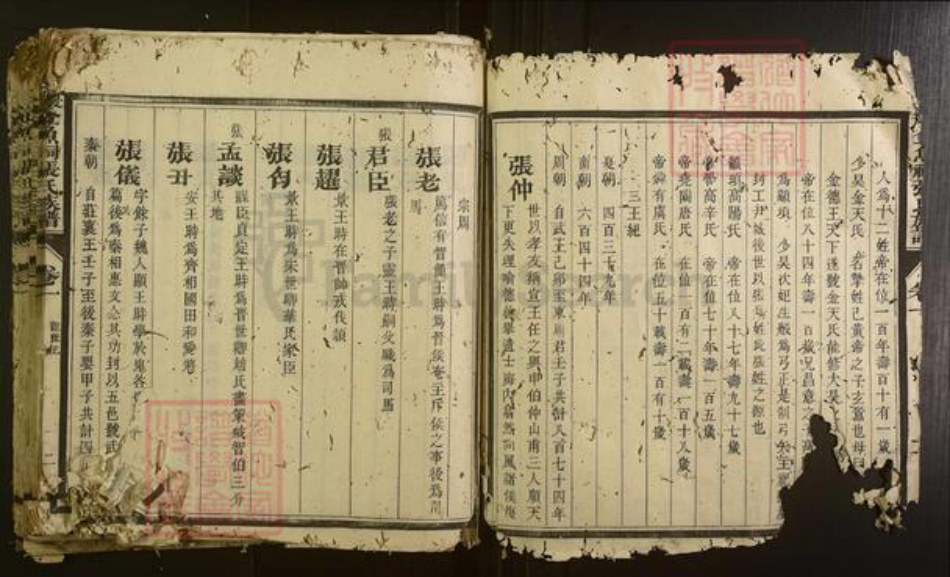 人為十二姓帝在位一百年壽百十有一歲
少昊金天氏 名摯姓己黃帝之子玄囂也母曰
金德王天下遂號金天氏能修大昊之
帝在位八十四年壽一百歲兄昌意之子高
為顓頊 少昊次妃生般為弓正是制弓矢主祀
封工尹城後世以張為姓此張姓之源也
顓頊高陽氏 帝在位八十七年壽九十七歲
帝嚳高辛氏 帝在位七十年壽一百五歲
帝堯陶唐氏 在位一百有二載壽一百十八歲
帝舜有虞氏 在位五十載壽一百有十歲
三王紀
夏朝 四百三十九年
商朝 六百四十四年
周朝 自武王己卯至東廟君壬子共計八百七十四年
張仲 世以孝友稱宣王任之與申伯仲山甫三人順天
下更失理喻德教舉遺士海內翕然向風諸侯復
宗周
張老 篤信有晉簡王時為晉侯奄主斥侯之事後為司
馬
張君臣 張老之子靈王時嗣父職為司馬
張趯 景王時在晉帥戎伐潁
張匄 景王時為宋世卿華氏家臣
張孟談 謀臣貞定王時為晉世卿趙氏畫策滅智伯三分
其地
張丑 安王時為齊相國田和愛將
張儀 字餘子魏人顯王時學於鬼谷
篇後為秦相惠文公其功封以五邑號武
秦朝 自莊襄王壬子至後秦子嬰甲子共計四
張氏族譜 卷一